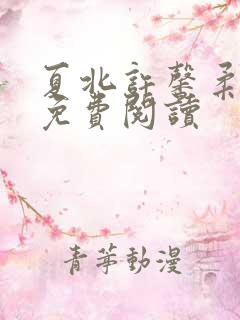 夏北許馨柔
免費閱讀
青苧動漫